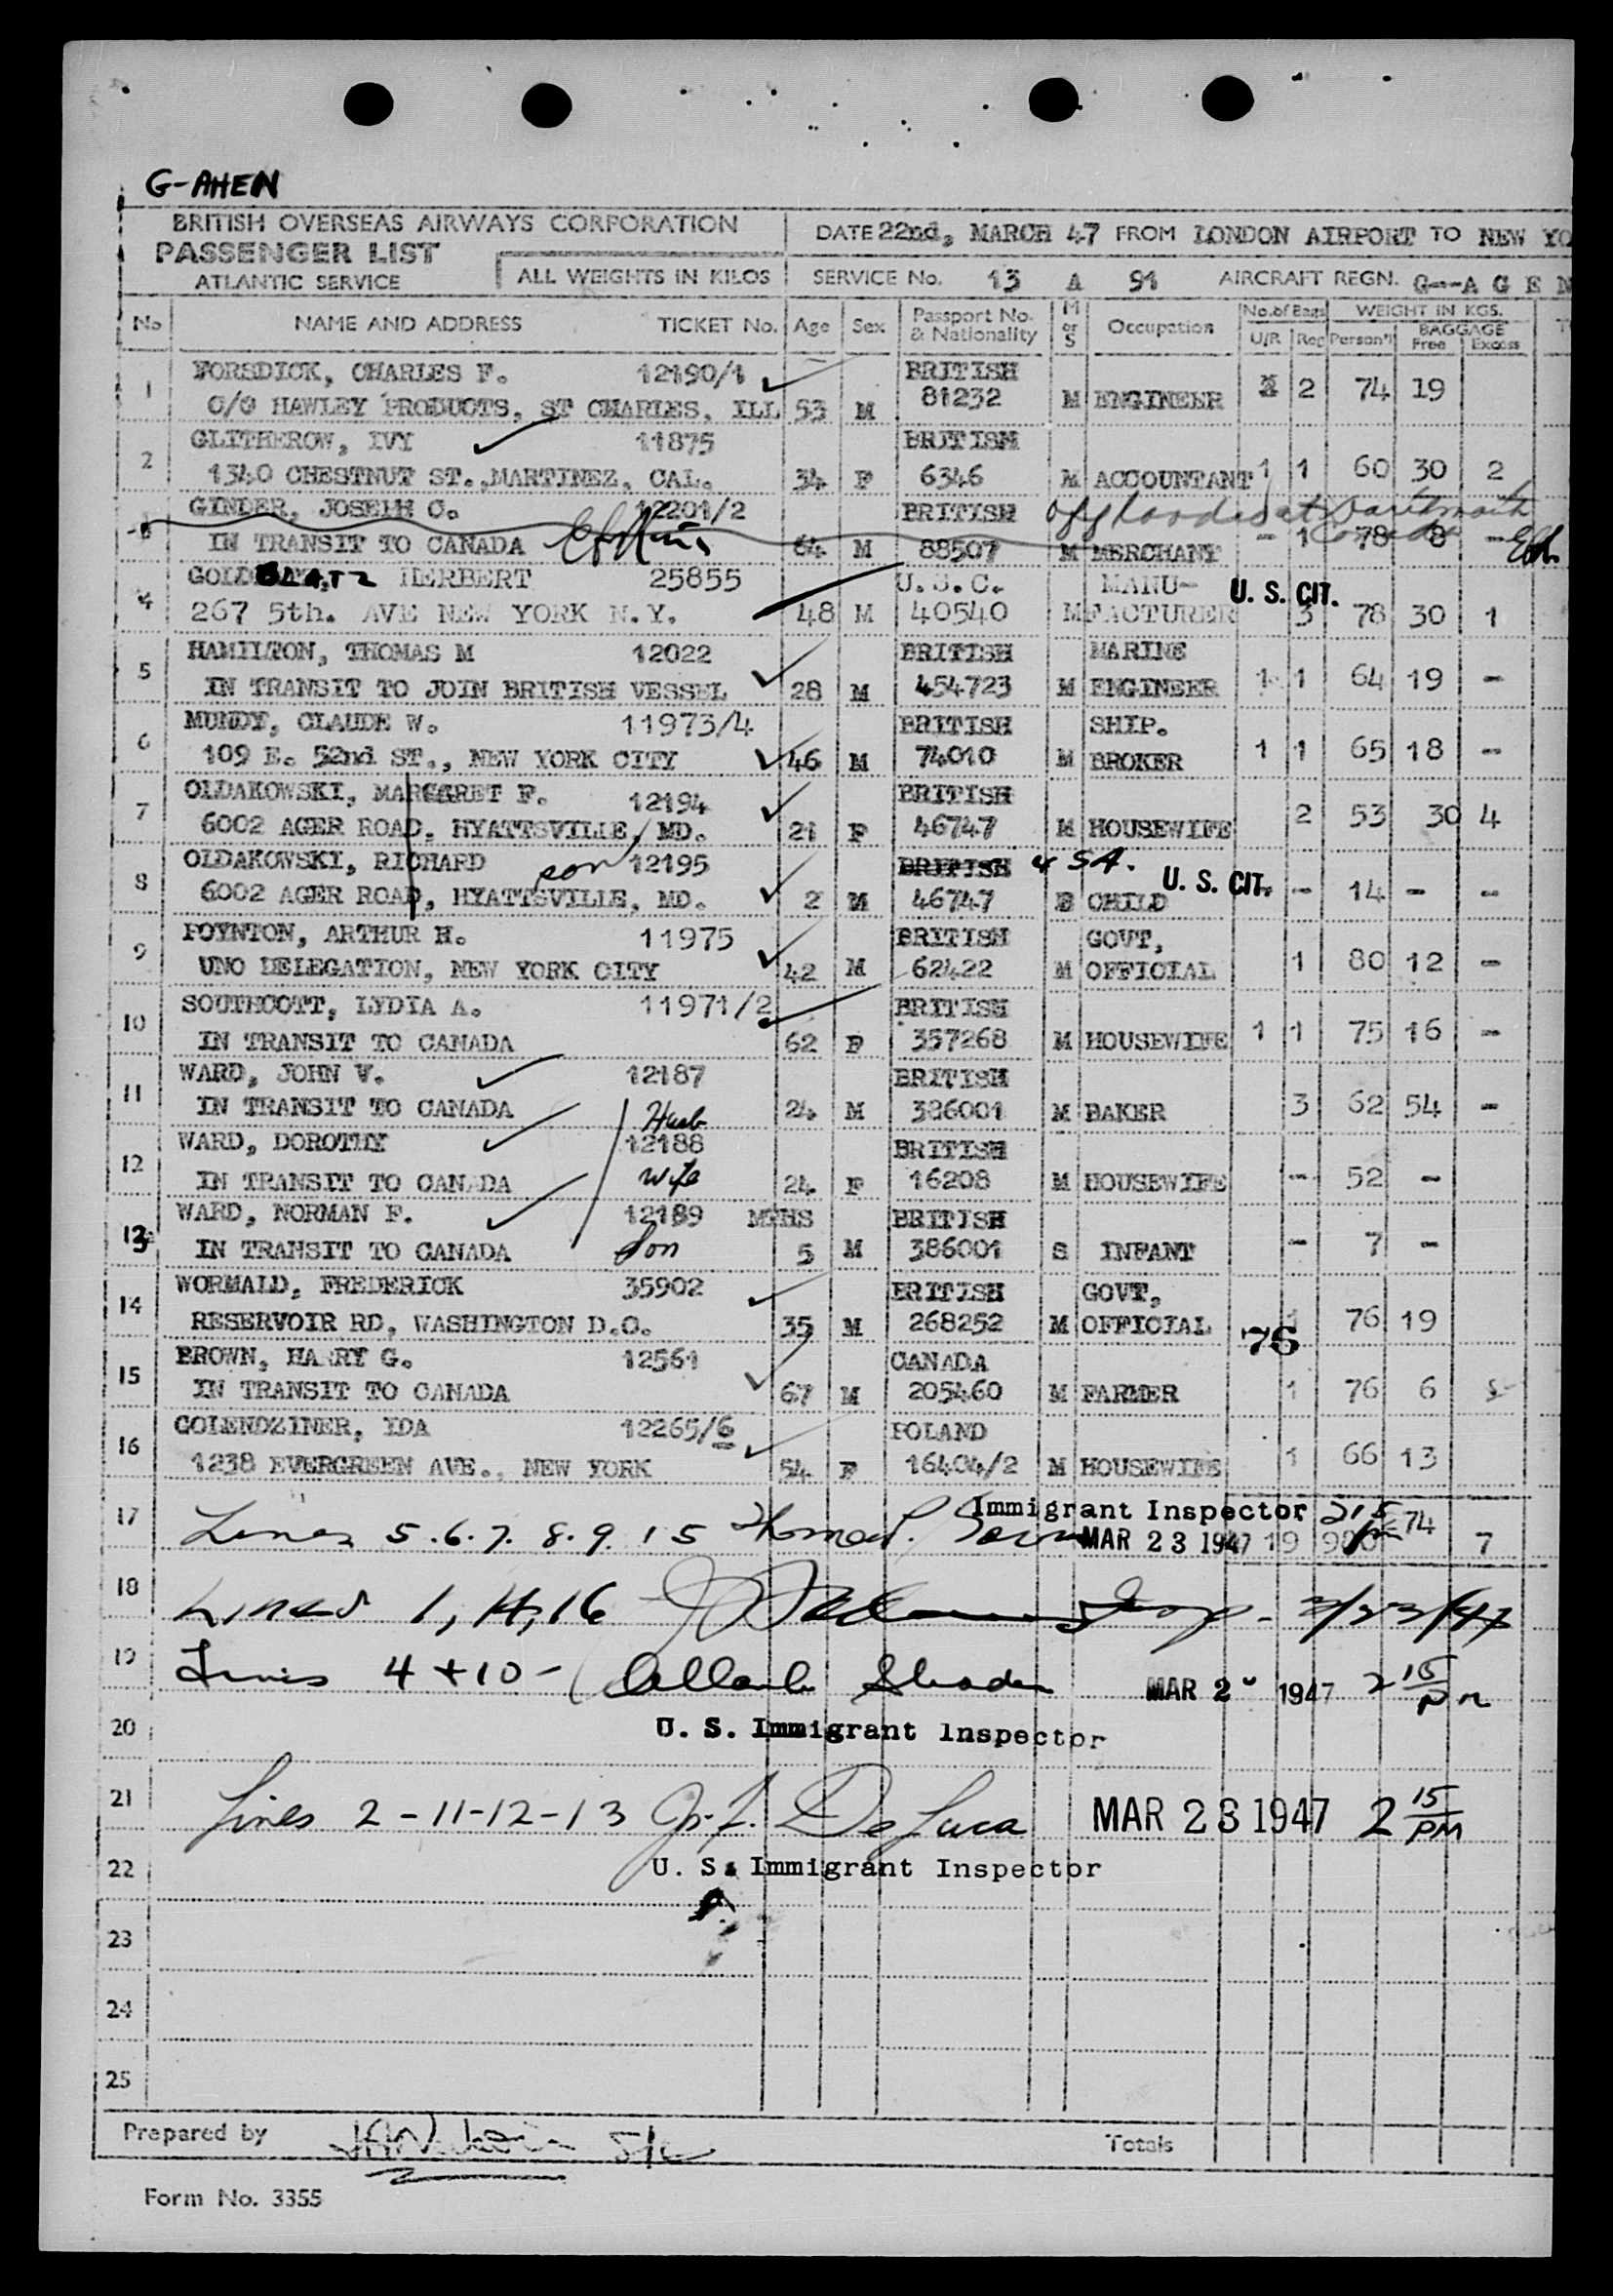 G-AHEN
BRITISH OVERSEAS AIRWAYS CORPORATION
PASSENGER LIST
ATLANTIC SERVICE
ALL WEIGHTS IN KILOS
DATE 22nd, MARCH 47 FROM LONDON AIRPORT TO NEW YO
SERVICE No. 13 A 91 AIRCRAFT REGN. G--A G E N
No NAME AND ADDRESS TICKET No. Age Sex Passport No. & Nationality M or S Occupation No. of Bags U/R Reg WEIGHT IN KGS. Person'l BAGGAGE Free Excess
1 FORSDICK, CHARLES F. 12190/1 BRITISH
C/O HAWLEY PRODUCTS, ST CHARLES, ILL 53 M 81232 M ENGINEER 2 74 19
2 GLITHEROW, IVY 11875 BRITISH
1340 CHESTNUT ST., MARTINEZ, CAL. 34 F 6346 M ACCOUNTANT 1 1 60 30 2
GINDER, JOSEPH C. 12201/2 BRITISH offloaded at
IN TRANSIT TO CANADA 64 M 88507 M MERCHANT - 1 78 8 -
4 GOLDBLATZ HERBERT 25855 U.S.C. MANU- U. S. CIT.
267 5th. AVE NEW YORK N.Y. 48 M 40540 M FACTURER 3 78 30 1
5 HAMILTON, THOMAS M 12022 BRITISH MARINE
IN TRANSIT TO JOIN BRITISH VESSEL 28 M 454723 M ENGINEER 1 1 64 19 -
6 MUNDY, CLAUDE W. 11973/4 BRITISH SHIP.
109 E. 52nd ST., NEW YORK CITY 46 M 74010 M BROKER 1 1 65 18 --
7 OLDAKOWSKI, MARGARET F. 12194 BRITISH
6002 AGER ROAD, HYATTSVILLE, MD. 21 F 46747 M HOUSEWIFE 2 53 30 4
8 OLDAKOWSKI, RICHARD son 12195 BRITISH USA. U. S. CIT.
6002 AGER ROAD, HYATTSVILLE, MD. 2 M 46747 S CHILD - 14 - --
9 POYNTON, ARTHUR H. 11975 BRITISH GOVT,
UNO DELEGATION, NEW YORK CITY 42 M 62422 M OFFICIAL 1 80 12 -
10 SOUTHCOTT, LYDIA A. 11971/2 BRITISH
IN TRANSIT TO CANADA 62 F 357268 M HOUSEWIFE 1 1 75 16 -
11 WARD, JOHN V. 12187 BRITISH
IN TRANSIT TO CANADA Husb 24 M 386001 M BAKER 3 62 54 -
12 WARD, DOROTHY 12188 BRITISH
IN TRANSIT TO CANADA Wife 24 F 16208 M HOUSEWIFE - 52 -
13 WARD, NORMAN F. 12189 MTHS BRITISH
IN TRANSIT TO CANADA Son 5 M 386001 S INFANT - 7 -
14 WORMALD, FREDERICK 35902 BRITISH GOVT,
RESERVOIR RD, WASHINGTON D.C. 35 M 268252 M OFFICIAL 1 76 19
76
15 BROWN, HARRY G. 12561 CANADA
IN TRANSIT TO CANADA 67 M 205460 M FARMER 1 76 6
16 GOLENDZINER, IDA 12265/6 POLAND
1238 EVERGREEN AVE., NEW YORK 54 F 16404/2 M HOUSEWIFE 1 66 13
Immigrant Inspector
17 Lines 5.6.7. 8.9. 15 MAR 23 1947 19 74 7
18 Lines 1, 14, 16 3/23/47
19 Lines 4 + 10 - MAR 2 1947 2 15 PM
20 U. S. Immigrant Inspector
21 Lines 2-11-12-13 De Luca MAR 23 1947 2 15 PM
22 U. S. Immigrant Inspector
23
24
25
Prepared by Totals
Form No. 3355